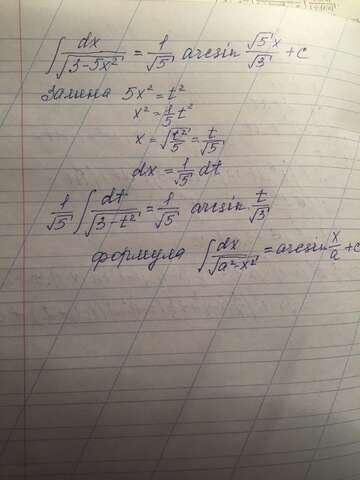 ∫ dx/√(3-5x²) = 1/√5 arcsin √5x/√3 + c
Замена 5x² = t²
x² = 1/5 t²
x = √(t²/5) = t/√5
dx = 1/√5 dt
1/√5 ∫ dt/√(3-t²) = 1/√5 arcsin t/√3
формула ∫ dx/√(a²-x²) = arcsin x/a + c